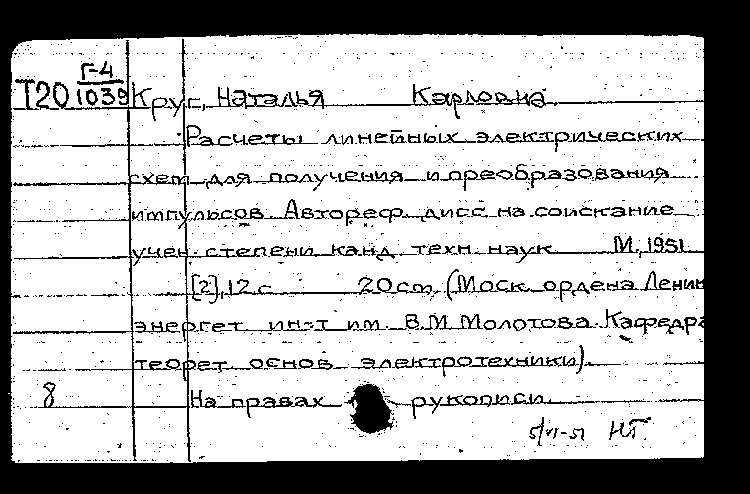 Г-4
Т20 1039 Круг, Наталья Карловна.
Расчеты линейных электрических
схем для получения и преобразования
импульсов Автореф. дисс на соискание
учен. степени канд техн. наук М., 1951
[2], 12 с 20 cm. (Моск ордена Ленин
энергет ин-т им В.М Молотова. Кафедра
теорет основ электротехники).
8 На правах рукописи.
5/VI-51 НТ